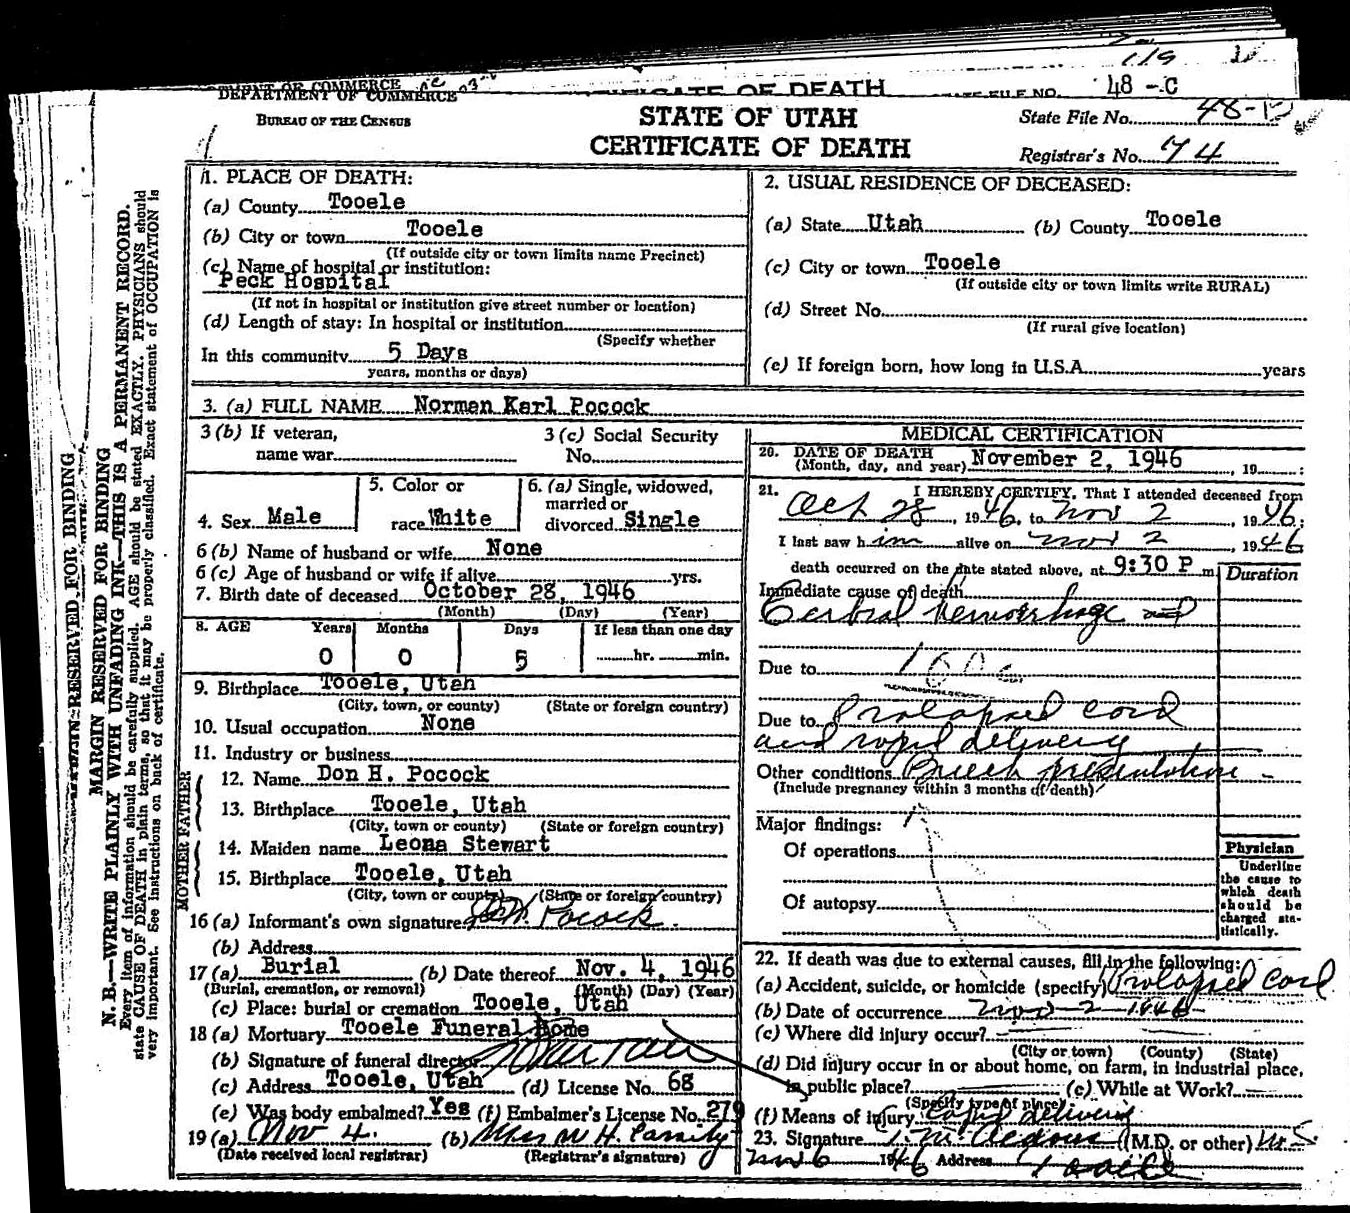 DEPARTMENT OF COMMERCE
BUREAU OF THE CENSUS
48-C
STATE OF UTAH
CERTIFICATE OF DEATH
State File No.
Registrar's No. 74
MARGIN RESERVED FOR BINDING
N. B.—WRITE PLAINLY WITH UNFADING INK—THIS IS A PERMANENT RECORD.
Every item of information should be carefully supplied. AGE should be stated EXACTLY. PHYSICIANS should
state CAUSE OF DEATH in plain terms, so that it may be properly classified. Exact statement of OCCUPATION is
very important. See instructions on back of certificate.
1. PLACE OF DEATH:
(a) County Tooele
(b) City or town Tooele
(If outside city or town limits name Precinct)
(c) Name of hospital or institution:
Peck Hospital
(If not in hospital or institution give street number or location)
(d) Length of stay: In hospital or institution
(Specify whether
In this community 5 Days
years, months or days)
2. USUAL RESIDENCE OF DECEASED:
(a) State Utah (b) County Tooele
(c) City or town Tooele
(If outside city or town limits write RURAL)
(d) Street No.
(If rural give location)
(e) If foreign born, how long in U.S.A. years
3. (a) FULL NAME Norman Karl Pocock
3 (b) If veteran, name war
3 (c) Social Security No.
4. Sex Male
5. Color or race White
6. (a) Single, widowed, married or divorced Single
6 (b) Name of husband or wife None
6 (c) Age of husband or wife if alive yrs.
7. Birth date of deceased October 28, 1946
(Month) (Day) (Year)
8. AGE Years Months Days If less than one day
0 0 5 hr. min.
9. Birthplace Tooele, Utah
(City, town, or county) (State or foreign country)
10. Usual occupation None
11. Industry or business
FATHER
12. Name Don H. Pocock
13. Birthplace Tooele, Utah
(City, town or county) (State or foreign country)
MOTHER
14. Maiden name Leona Stewart
15. Birthplace Tooele, Utah
(City, town or county) (State or foreign country)
16 (a) Informant's own signature Pocock
(b) Address
17 (a) Burial (b) Date thereof Nov. 4, 1946
(Burial, cremation, or removal) (Month) (Day) (Year)
(c) Place: burial or cremation Tooele, Utah
18 (a) Mortuary Tooele Funeral Home
(b) Signature of funeral director
(c) Address Tooele, Utah (d) License No. 68
(e) Was body embalmed? Yes (f) Embalmer's License No. 279
19 (a) Nov 4. (b) Mrs W H.
(Date received local registrar) (Registrar's signature)
MEDICAL CERTIFICATION
20. DATE OF DEATH
(Month, day, and year) November 2, 1946, 19
21. I HEREBY CERTIFY, That I attended deceased from
Oct 28, 1946, to Nov 2, 1946;
I last saw him alive on Nov 2, 1946
death occurred on the date stated above, at 9:30 P m
Duration
Immediate cause of death
Cerbral hemorrhage and
Due to
Due to Prolapsed cord
and rapid delivery
Other conditions Breech presentation
(Include pregnancy within 3 months of death)
Major findings:
Of operations
Of autopsy
Physician
Underline
the cause to
which death
should be
charged sta-
tistically.
22. If death was due to external causes, fill in the following:
(a) Accident, suicide, or homicide (specify) Prolapsed Cord
(b) Date of occurrence Nov-2-1946
(c) Where did injury occur?
(City or town) (County) (State)
(d) Did injury occur in or about home, on farm, in industrial place,
in public place? (e) While at Work?
(Specify type of place)
(f) Means of injury rapid delivery
23. Signature (M.D. or other)
Nov 6 1946 Address Tooele